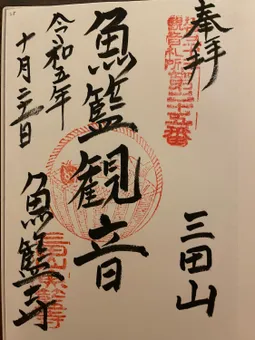 奉拝
三田山
観音札所第二十五番
魚籃観音
令和五年
十月
魚籃寺
三田山魚籃寺